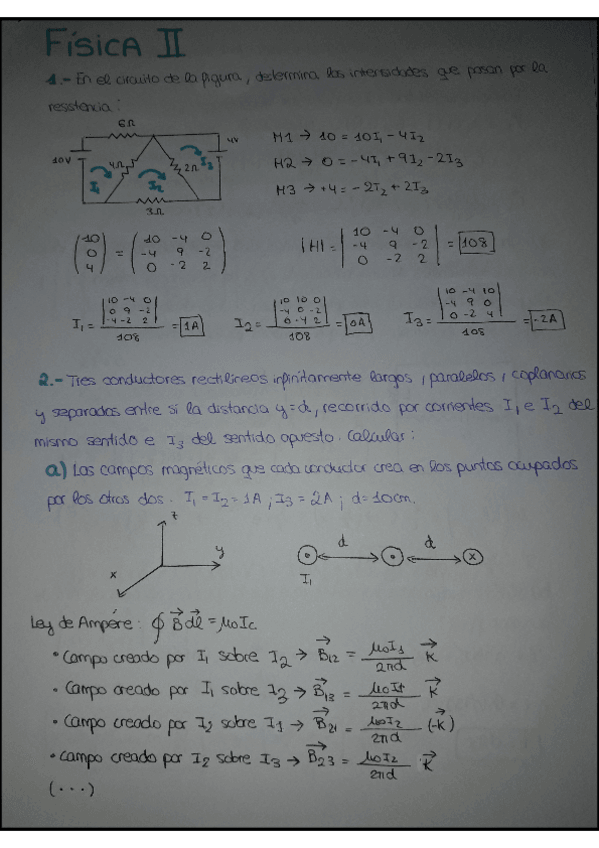 FÍSICA II
1.- En el circuito de la figura, determina las intensidades que pasan por la
resistencia:
6Ω
10V 4Ω 2Ω 4V
I₁ I₂ I₃
3Ω
M1 → 10 = 10I₁ - 4I₂
M2 → 0 = -4I₁ + 9I₂ - 2I₃
M3 → +4 = -2I₂ + 2I₃
(10 0 4) = (10 -4 0
-4 9 -2
0 -2 2)
|M| = |10 -4 0
-4 9 -2
0 -2 2| = 108
I₁ = |10 -4 0
0 9 -2
-4 -2 2| / 108 = 1A
I₂ = |10 10 0
-4 0 -2
0 -4 2| / 108 = 0A
I₃ = |10 -4 10
-4 9 0
0 -2 4| / 108 = -2A
2.- Tres conductores rectilíneos infinitamente largos, paralelos, coplanarios
y separados entre sí la distancia y=d, recorrido por corrientes I₁ e I₂ del
mismo sentido e I₃ del sentido opuesto. Calcular:
a) Los campos magnéticos que cada conductor crea en los puntos ocupados
por los otros dos. I₁ = I₂ = 1A; I₃ = 2A; d = 10cm.
z
y
x
d d
I₁
Ley de Ampére: ∮ B⃗ dl⃗ = μ₀Ic
• Campo creado por I₁ sobre I₂ → B⃗₁₂ = μ₀I₁/2πd K⃗
• Campo creado por I₁ sobre I₃ → B⃗₁₃ = μ₀I₁/2πd K⃗
• Campo creado por I₂ sobre I₁ → B⃗₂₁ = μ₀I₂/2πd (-K⃗)
• Campo creado por I₂ sobre I₃ → B⃗₂₃ = μ₀I₂/2πd K⃗
(...)